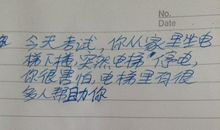 No.
Date
今天考试，你从家里坐电
梯下楼，突然电梯停电，
你很害怕，电梯里有很
多人帮助你